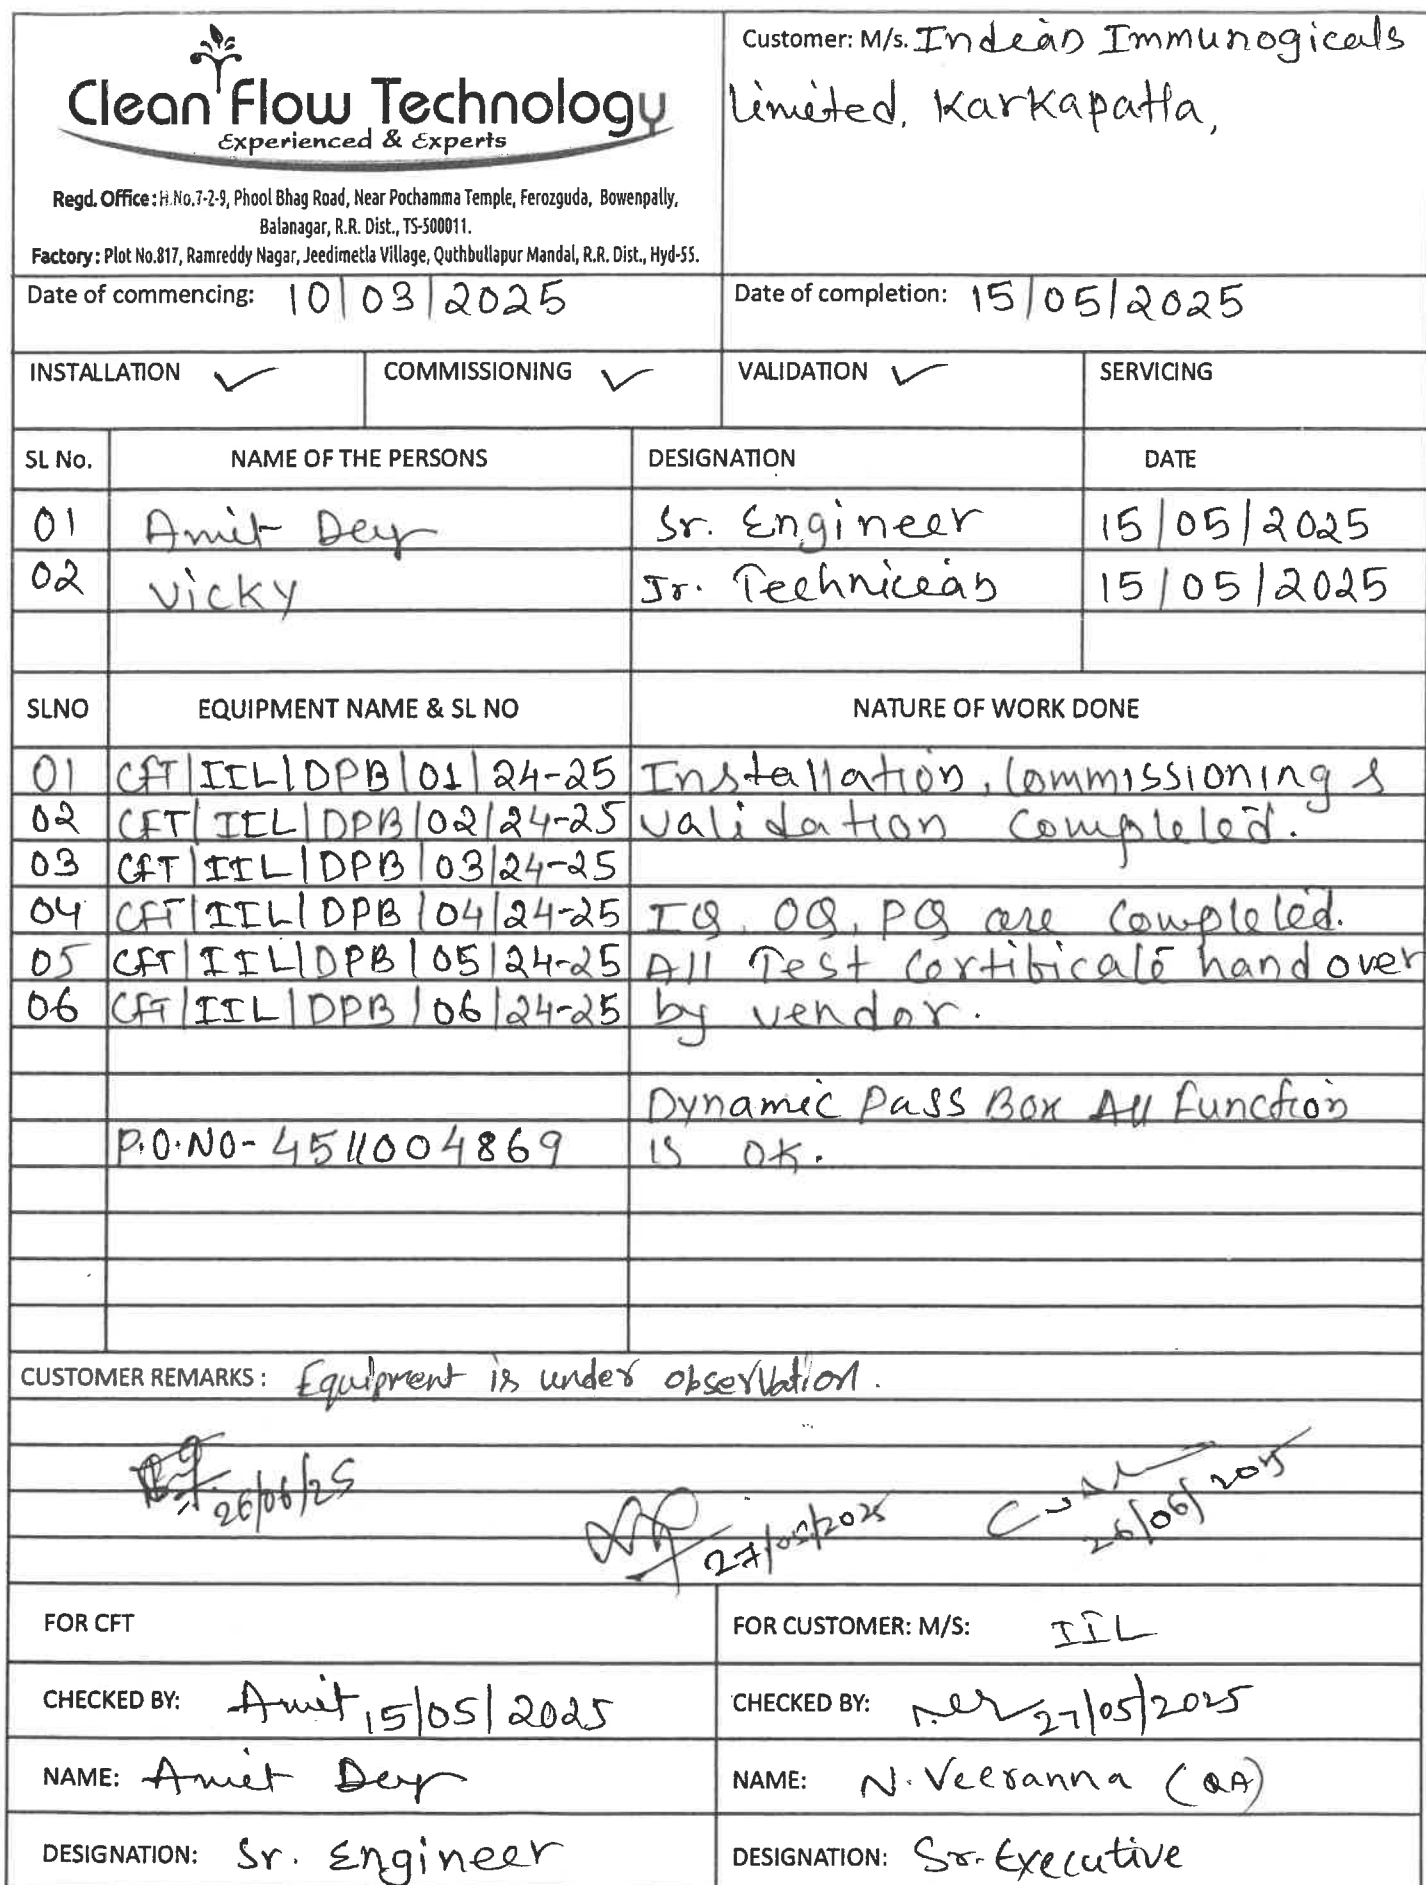 Clean Flow Technology
Experienced & Experts
Regd. Office : H.No.7-2-9, Phool Bhag Road, Near Pochamma Temple, Ferozguda, Bowenpally,
Balanagar, R.R. Dist., TS-500011.
Factory : Plot No.817, Ramreddy Nagar, Jeedimetla Village, Quthbullapur Mandal, R.R. Dist., Hyd-55.
Customer: M/s. Indian Immunogicals
Limited, Karkapatla,
Date of commencing: 10/03/2025 Date of completion: 15/05/2025
INSTALLATION ✓ COMMISSIONING ✓ VALIDATION ✓ SERVICING
SL No. NAME OF THE PERSONS DESIGNATION DATE
01 Amit Dey Sr. Engineer 15/05/2025
02 Vicky Jr. Technician 15/05/2025
SLNO EQUIPMENT NAME & SL NO NATURE OF WORK DONE
01 CFT/IIL/DPB/01/24-25 Installation, Commissioning &
02 CFT/IIL/DPB/02/24-25 Validation Completed.
03 CFT/IIL/DPB/03/24-25
04 CFT/IIL/DPB/04/24-25 IQ, OQ, PQ are Completed.
05 CFT/IIL/DPB/05/24-25 All Test Certificate hand over
06 CFT/IIL/DPB/06/24-25 by vendor.
Dynamic Pass Box All Function
P.O.NO- 4511004869 is OK.
CUSTOMER REMARKS : Equipment is under observation.
26/06/25
27/05/2025
26/06/2025
FOR CFT FOR CUSTOMER: M/S: IIL
CHECKED BY: Amit 15/05/2025 CHECKED BY: 27/05/2025
NAME: Amit Dey NAME: N. Veeranna (QA)
DESIGNATION: Sr. Engineer DESIGNATION: Sr. Executive